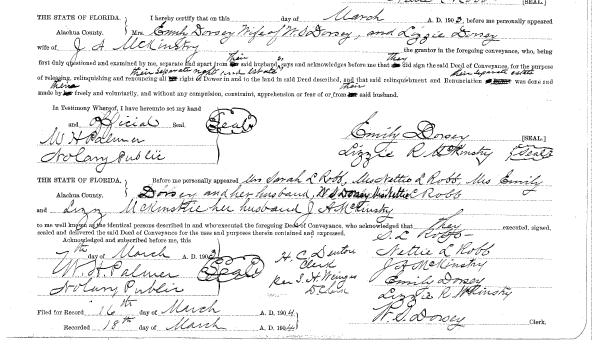 [SEAL]
THE STATE OF FLORIDA. I hereby certify that on this day of March A. D. 190 , before me personally appeared
Alachua County. Mrs Emily Dorsey Wife of W. S. Dorsey, and Lizzie Dorsey
wife of J A McKinstry the grantor in the foregoing conveyance, who, being
their they
first duly questioned and examined by me, separate and apart from said husband, says and acknowledges before me that did sign the said Deed of Conveyance, for the purpose
their separate right and estate their separate estate
of releasing, relinquishing and renouncing all right of Dower in and to the land in said Deed described, and that said relinquishment and Renunciation was done and
them their
made by freely and voluntarily, and without any compulsion, constraint, apprehension or fear of or from said husband.
In Testimony Whereof, I have hereunto set my hand
and official Seal. Seal
Emily Dorsey [SEAL.]
W H Palmer
Lizzie R McKinstry Seal
Notary Public
THE STATE OF FLORIDA. Before me personally appeared Mrs Sarah L Robb, Mrs Nettie L Robb, Mrs Emily
Alachua County. Dorsey and her husband, W. S. Dorsey Nettie L Robb
and Lizz McKinstrie her husband J A McKinstry
to me well known as the identical persons described in and who executed the foregoing Deed of Conveyance, who acknowledged that they executed, signed,
sealed and delivered the said Deed of Conveyance for the uses and purposes therein contained and expressed.
Acknowledged and subscribed before me, this
S. L Robb
7th day of March A. D. 190
H. C. Denton
Clerk
Nettie L Robb
W. H Palmer Seal
J A McKinstry
Notary Public
Emily Dorsey
Lizzie R McKinstry
Filed for Record 16th day of March A. D. 1904
W. S. Dorsey
Recorded 18th day of March A. D. 1904 Clerk.